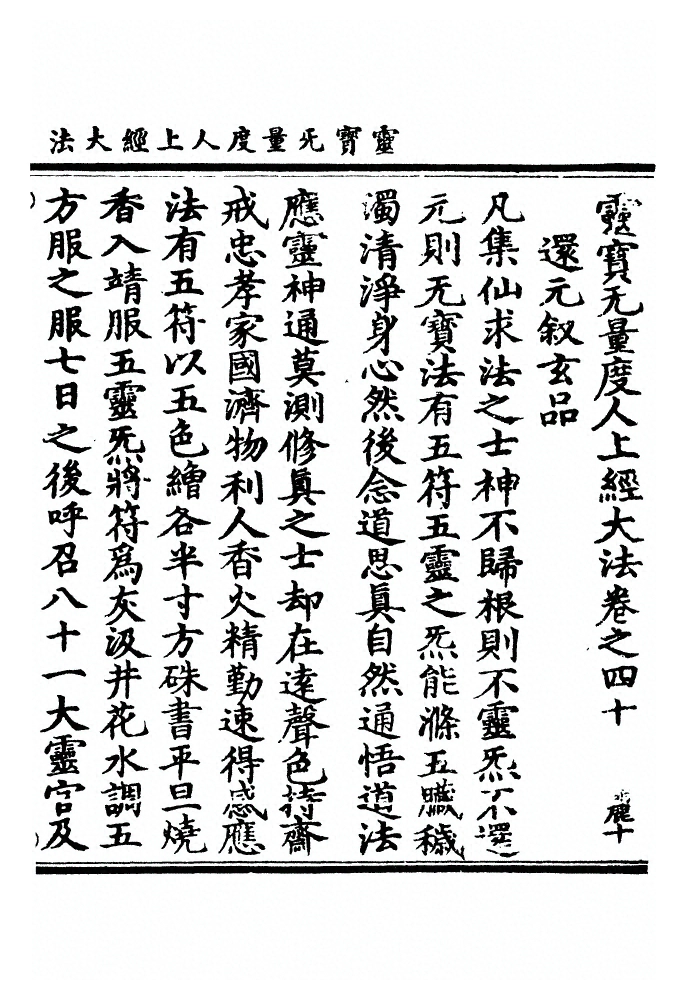 靈寳旡量度人上經大法
靈寳无量度人上經大法卷之四十
麗十
還元叙玄品
凡集仙求法之士神不歸根則不靈炁不還
元則无寳法有五符五靈之炁能滌五臟穢
濁清淨身心然後念道思眞自然通悟道法
應靈神通莫測修眞之士却在達聲色持齋
戒忠孝家國濟物利人香火精勤速得感應
法有五符以五色繒各半寸方硃書平旦燒
香入靖服五靈炁將符爲灰汲井花水調五
方服之服七日之後呼召八十一大靈官及